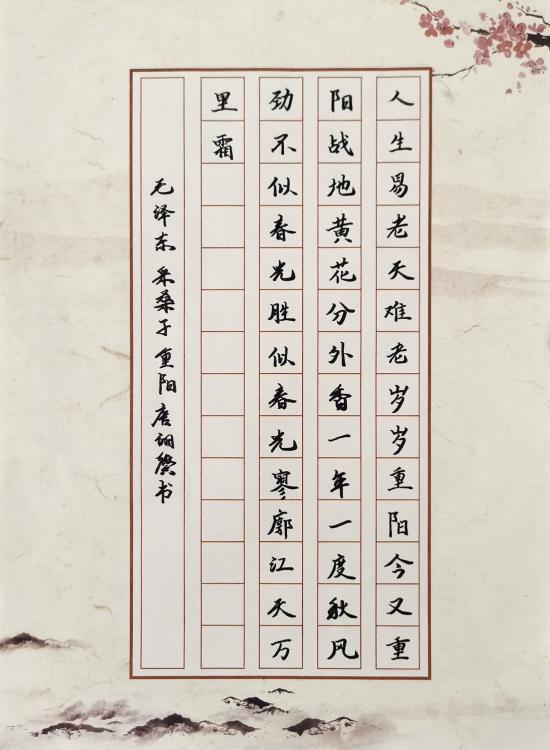 人生易老天难老岁岁重阳今又重
阳战地黄花分外香一年一度秋风
劲不似春光胜似春光寥廓江天万
里霜
毛泽东 采桑子 重阳 唐书